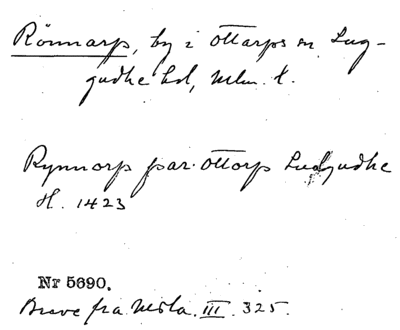 Rönnarp, by i Ottarps sn Lug-
gudhe hd, Mlm. l.
Rynnorp par. Ottorp Ludgudhe
H. 1423
Nr 5690.
Breve fra Midla. III. 325.